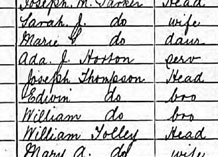 Joseph M. Parker Head
Sarah J. do wife
Marie V do daur
Ada. J. Horson serv
Joseph Thompson Head
Edwin do boo
William do boo
William Tolley Head
Mary A. do wife